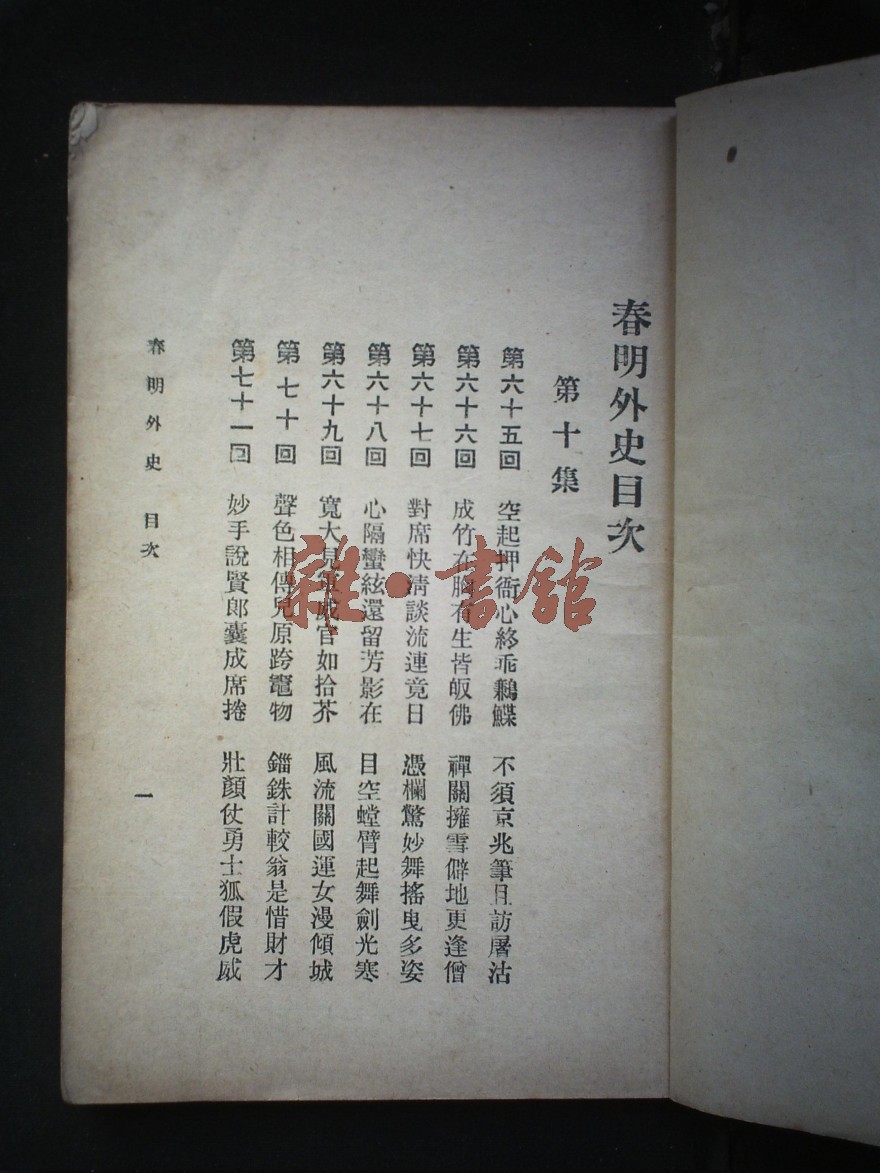 春明外史目次
第十集
第六十五回 空起押衙心終乖鶼鰈 不須京兆筆且訪屠沽
第六十六回 成竹在胸有生皆皈佛 禪關擁雪僻地更逢僧
第六十七回 對席快清談流連竟日 憑欄驚妙舞搖曳多姿
第六十八回 心隔蠻絃還留芳影在 目空螳臂起舞劍光寒
第六十九回 寬大見軍威官如拾芥 風流關國運女漫傾城
第七十回 聲色相傳兒原跨竈物 錙銖計較翁是惜財才
第七十一回 妙手說賢郎囊成席捲 壯顏仗勇士狐假虎威
春明外史 目次
一
雜·書館